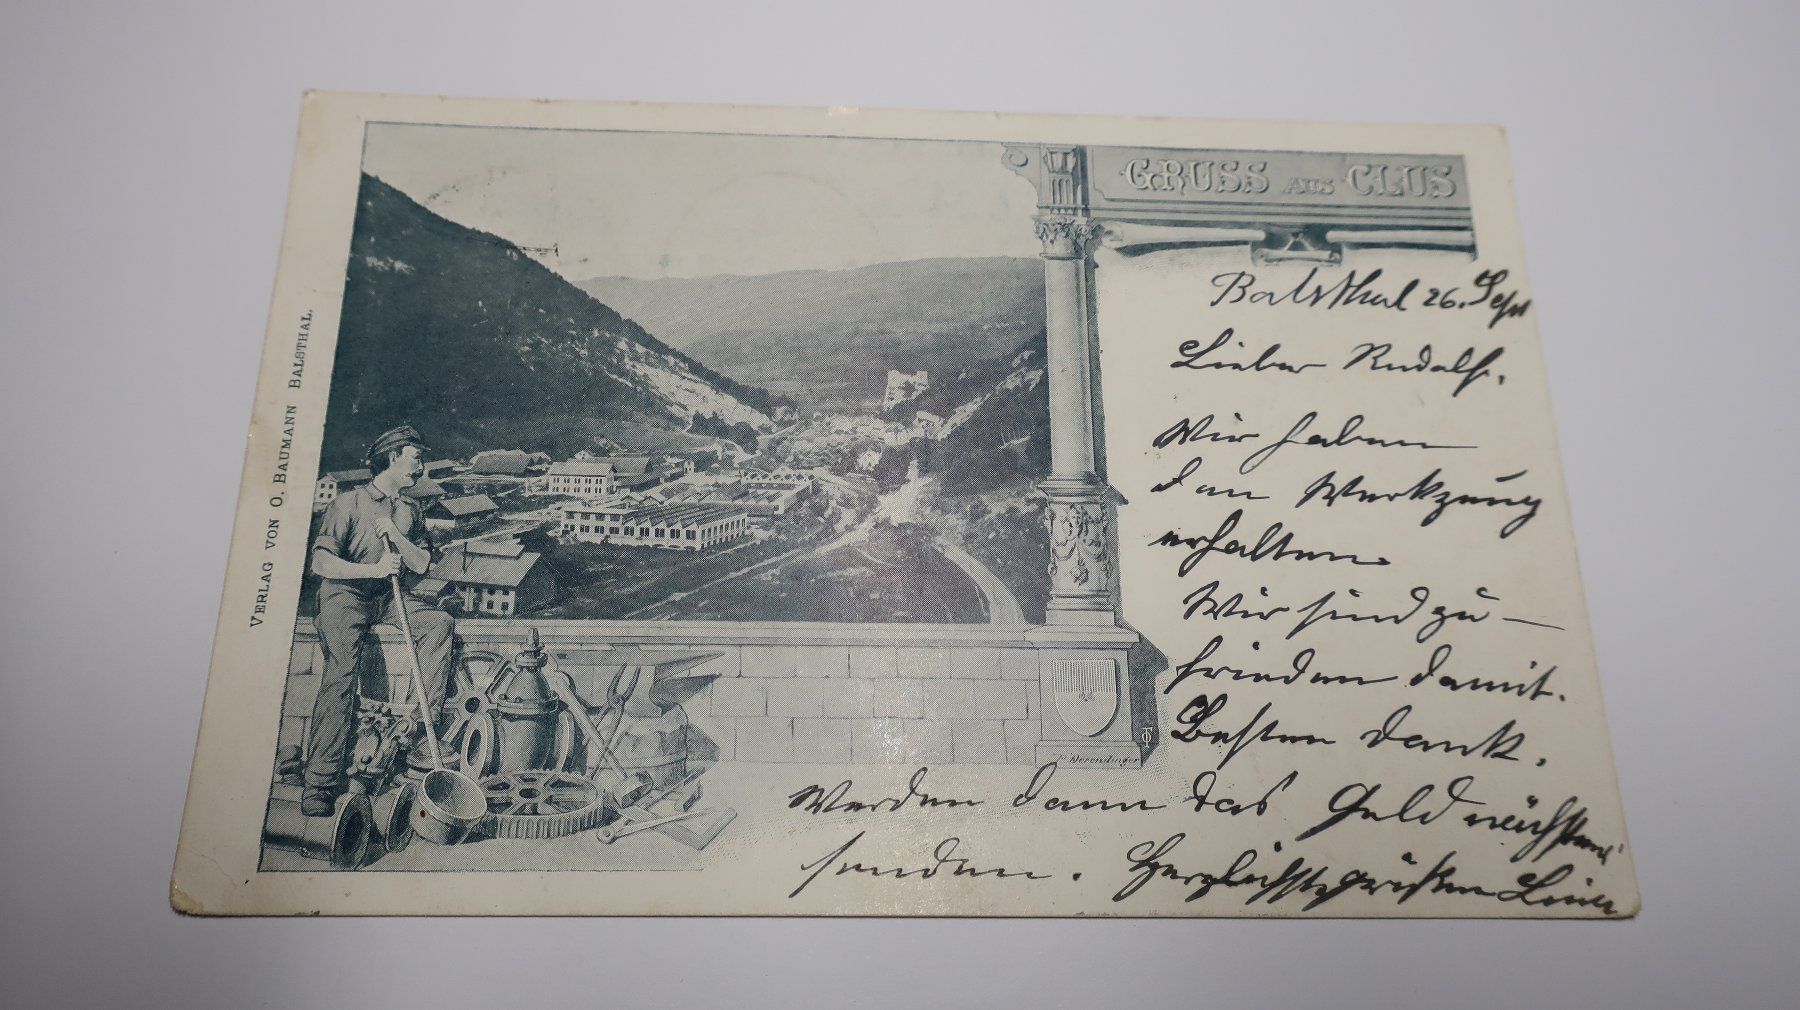 GRUSS AUS CLUS
VERLAG VON O. BAUMANN BALSTHAL.
Balsthal 26. Sept
Lieber Rudolf.
Wir haben
den Werkzeug
erhalten.
Wir sind zu-
frieden damit.
Besten Dank.
Werden dann das Geld nächstens
senden. Herzlichste Grüssen